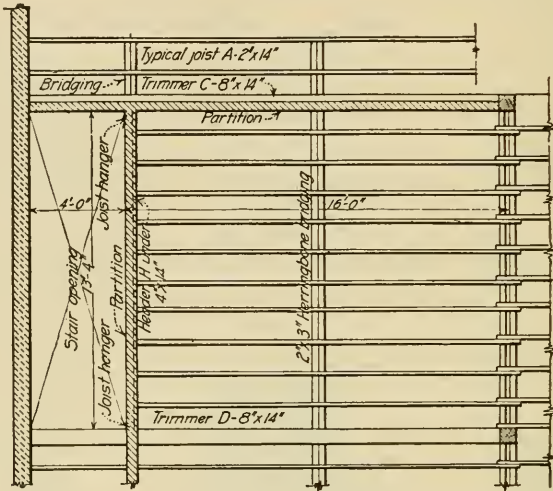 Typical joist A-2"x14"
Bridging
Trimmer C-8"x14"
Partition
4'-0"
16'-0"
Joist hanger
Stair opening
13'-4"
Partition
Header H under
4"x14"
2"x3" Herringbone bridging
Joist hanger
Trimmer D-8"x14"